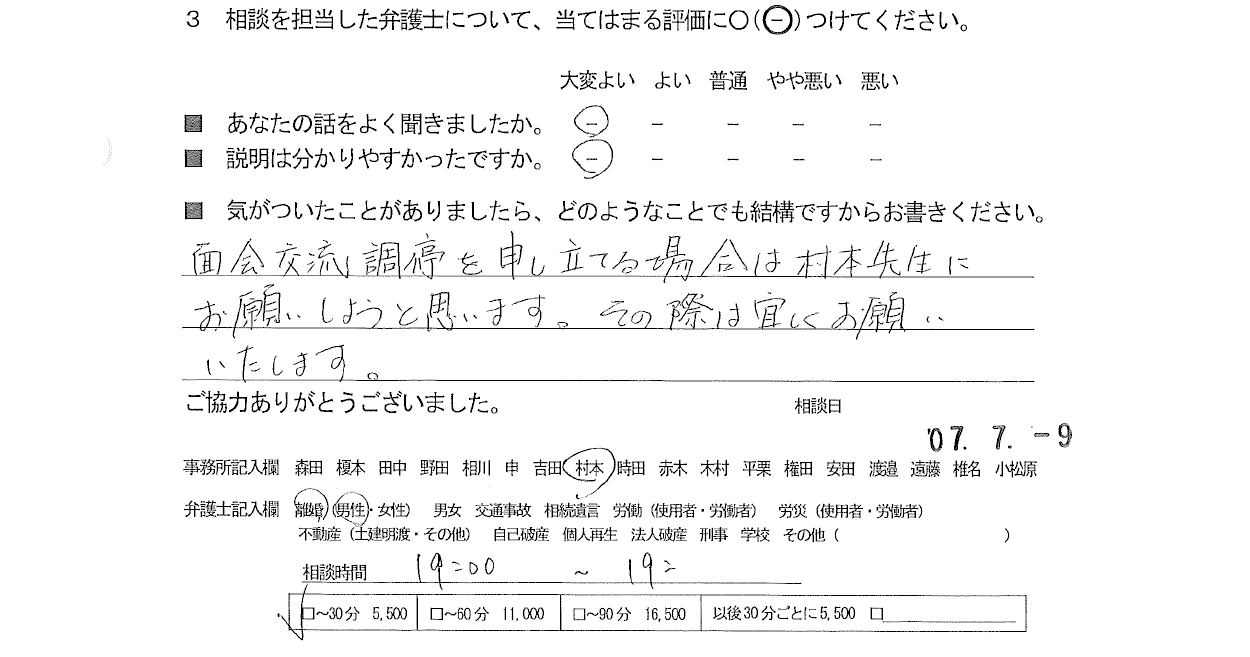 3 相談を担当した弁護士について、当てはまる評価に○(㊀)つけてください。
大変よい よい 普通 やや悪い 悪い
■ あなたの話をよく聞きましたか。 － － － － －
■ 説明は分かりやすかったですか。 － － － － －
■ 気がついたことがありましたら、どのようなことでも結構ですからお書きください。
面会交流調停を申し立てる場合は村本先生に
お願いしようと思います。その際は宜しくお願い
いたします。
ご協力ありがとうございました。 相談日
'07. 7. -9
事務所記入欄 森田 榎本 田中 野田 相川 申 吉田 村本 時田 赤木 木村 平栗 権田 安田 渡邉 遠藤 椎名 小松原
弁護士記入欄 離婚 (男性・女性) 男女 交通事故 相続遺言 労働 (使用者・労働者) 労災 (使用者・労働者)
不動産 (土建明渡・その他) 自己破産 個人再生 法人破産 刑事 学校 その他 ( )
相談時間 19:00 ～ 19:
□～30分 5,500 □～60分 11,000 □～90分 16,500 以後30分ごとに5,500 □